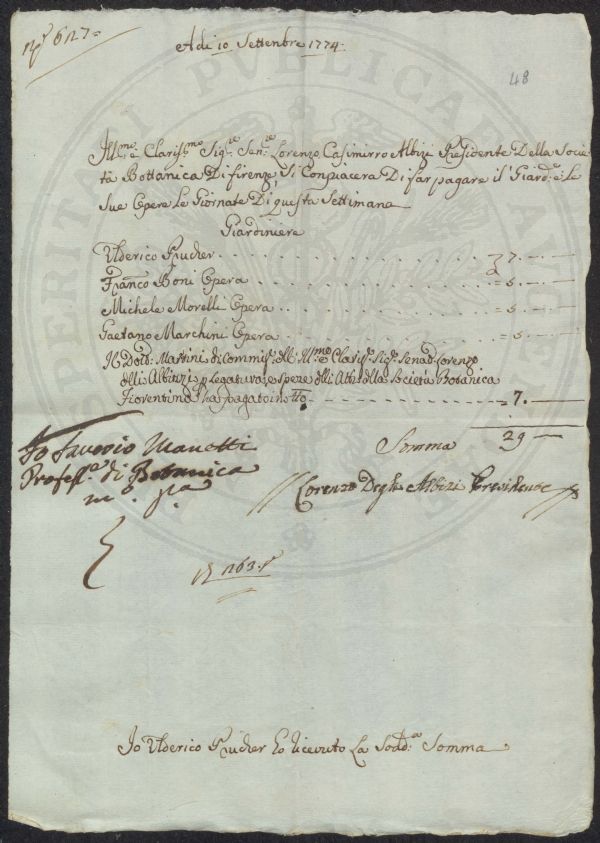 N.º 627
Adi 10 Settembre 1774.
48
Ill.mo e Clariss.mo Sig.re Sen.re Lorenzo Casimirro Albizi Presidente Della Socie
tà Bottanica Di firenze, Si Conpiacera Di far pagare il Giard.e e Le
Sue Opere Le Giornate Di questa Settimana
Giardiniere
Ulderico Prucher . . . 7. —
Franco Boni Opera . . . = 5. —
Michele Morelli Opera . . . = 5. —
Gaetano Marchini Opera . . . = 5. —
Il Dott. Martini di Commiss. dell' Ill.mo e Clariss. Sig.re Senad. Lorenzo
delli Albizzi p legatura, e spese delli Atti della Società Botanica
Fiorentina ha pagato in tto . . . = 7. —
Somma 29 —
Io Saverio Manetti
Profess.re di Botanica
m.o p.a
Lorenzo Degli Albizi Presidente
1263
Io Ulderico Prucher Ho ricevuto La Sodd.a Somma